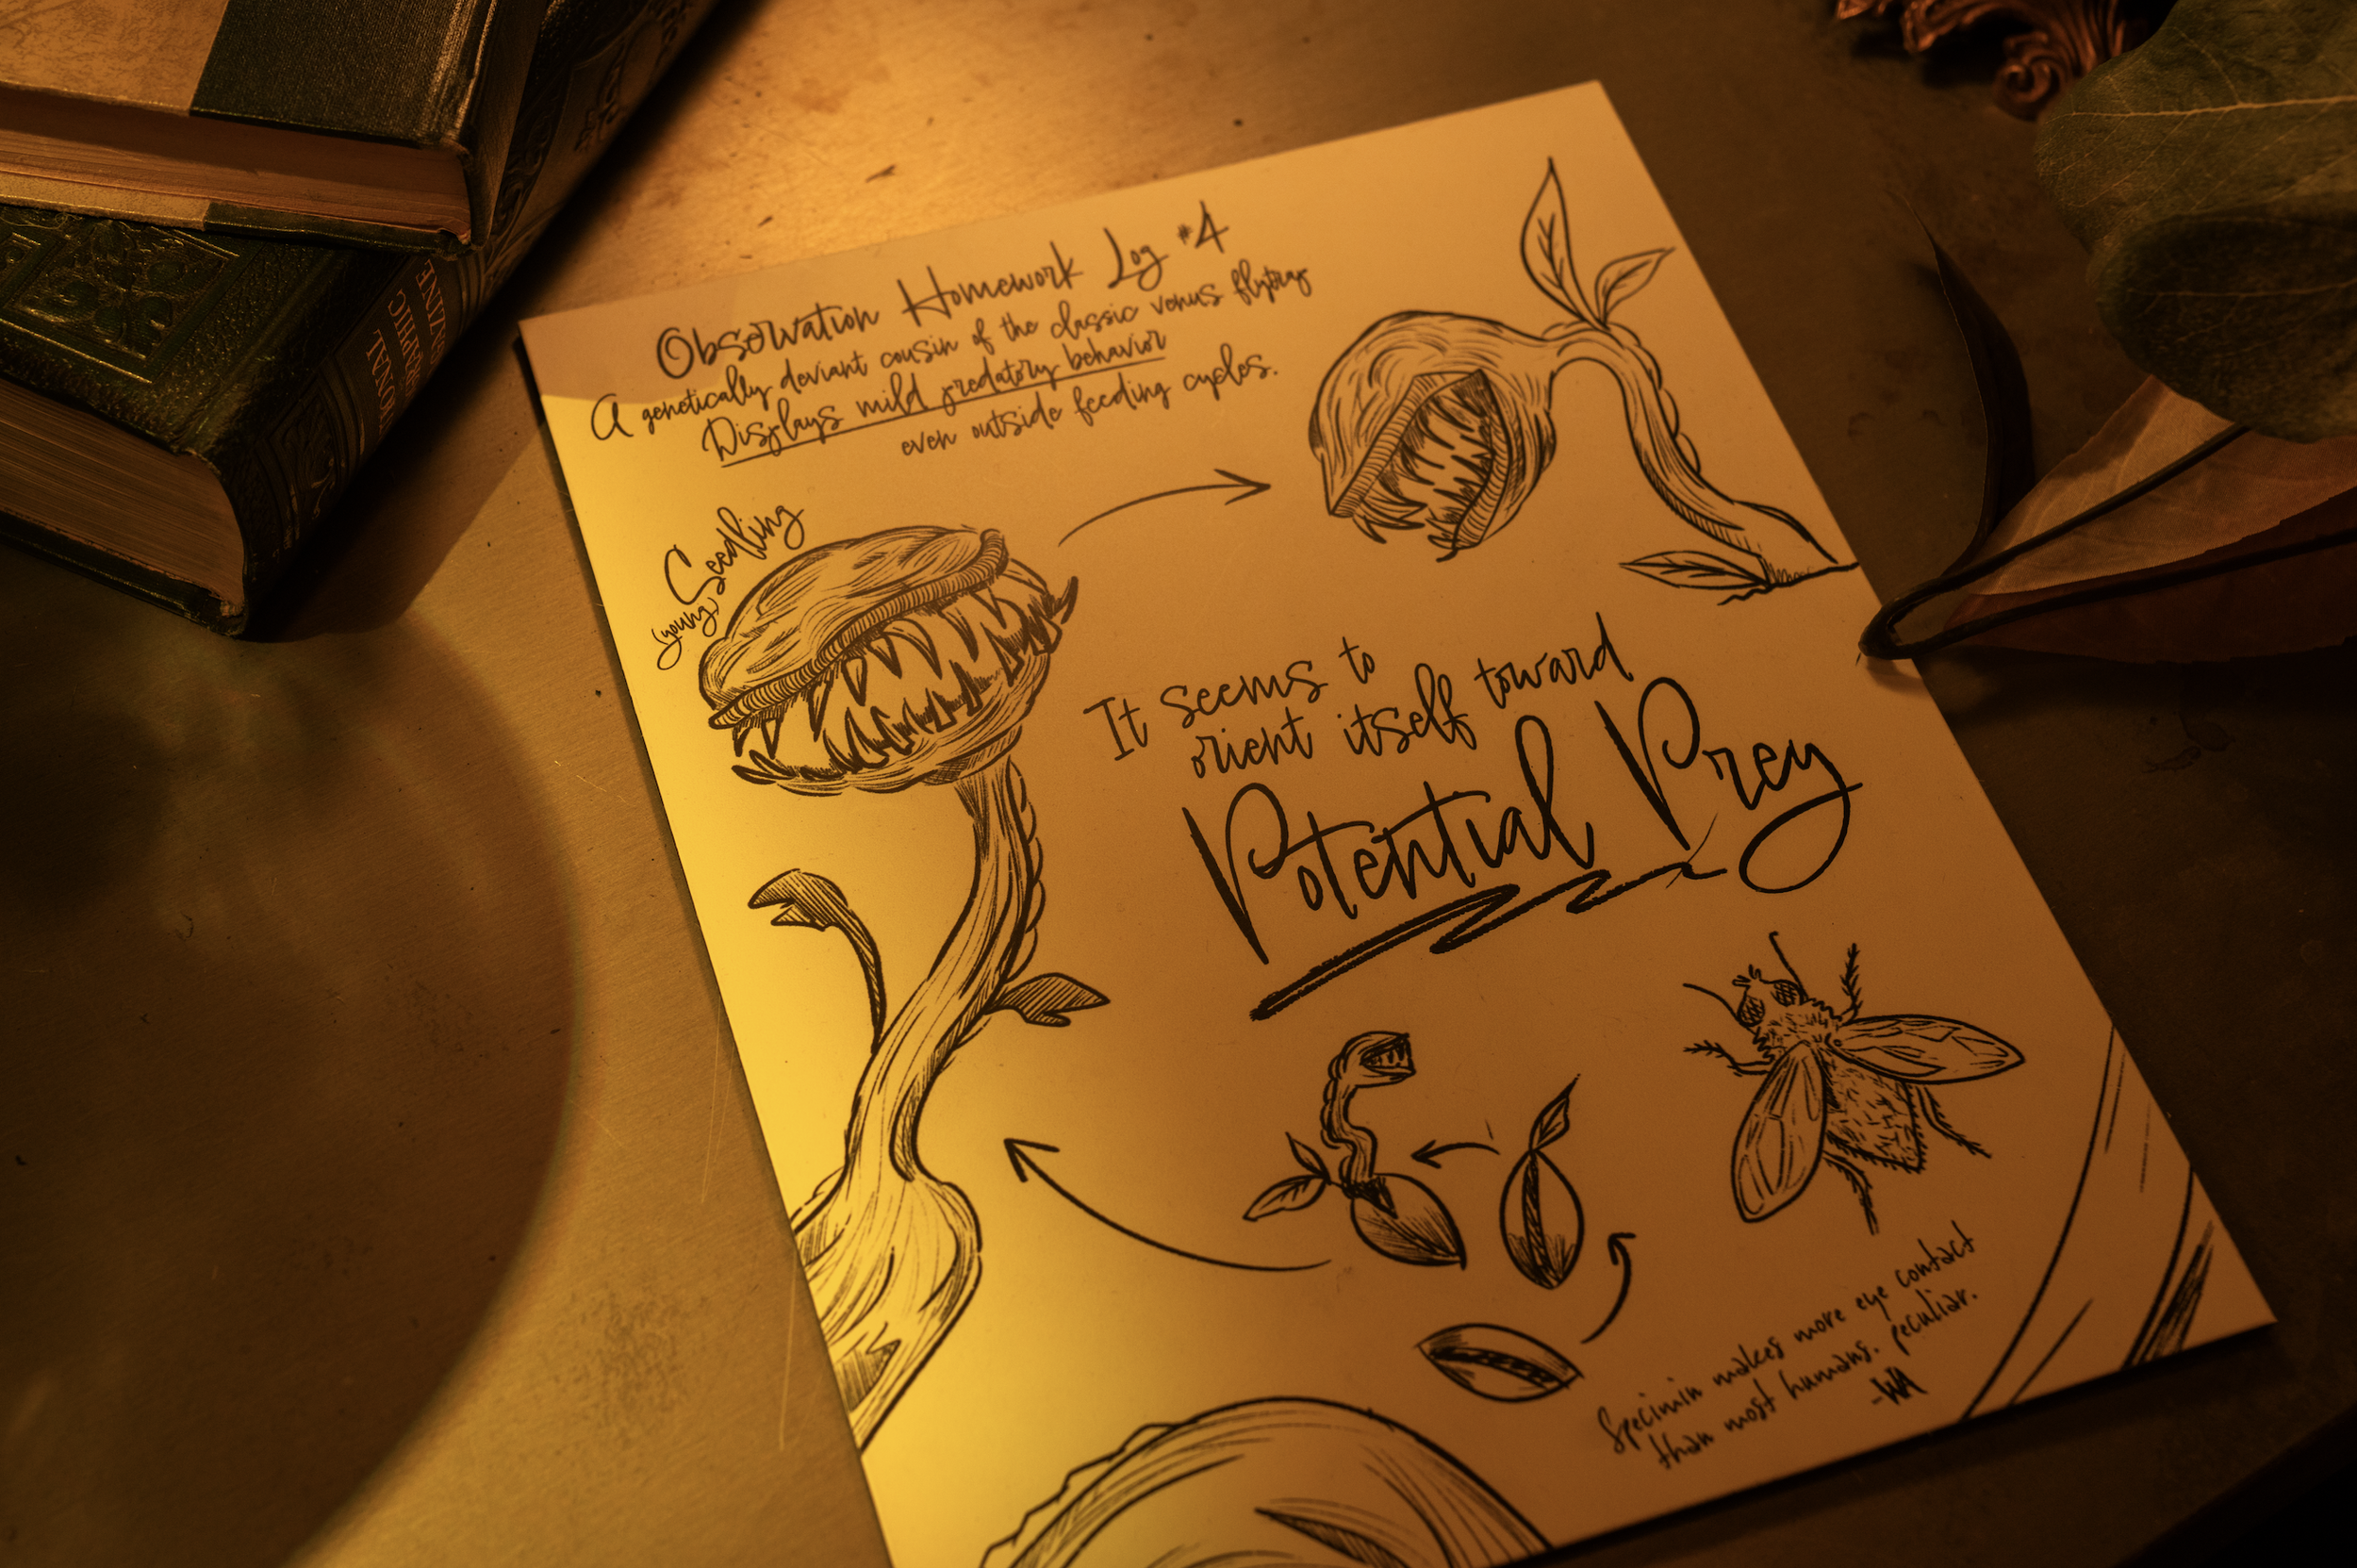 Observation Homework Log #4
A genetically deviant cousin of the classic venus flytrap
Displays mild predatory behavior
even outside feeding cycles.
(young) Seedling
It seems to
orient itself toward
Potential Prey
Specimin makes more eye contact
than most humans. peculiar.
-WA